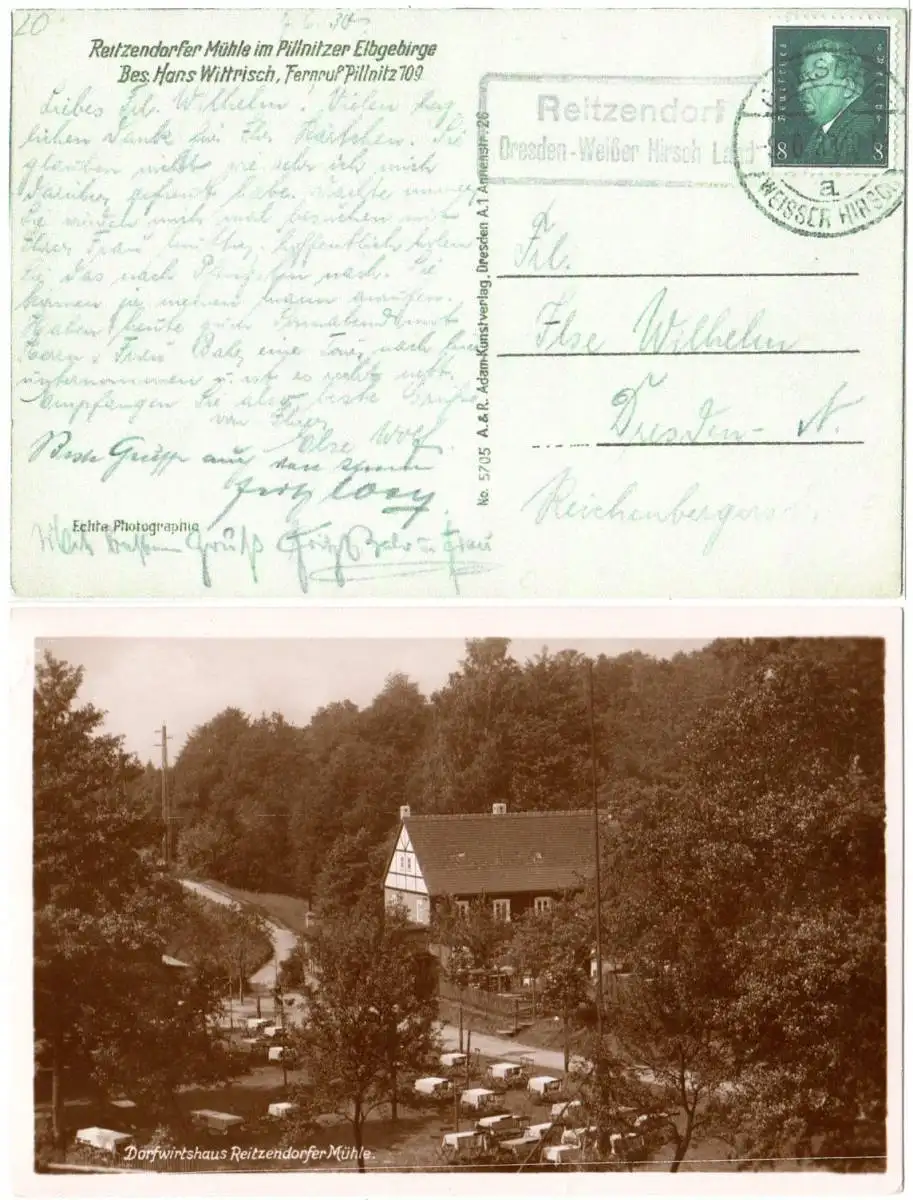 20
7. 6. 30
Reitzendorfer Mühle im Pillnitzer Elbgebirge
Bes. Hans Wittrisch, Fernruf Pillnitz 709
Liebes Frl. Wilhelm! Vielen herz-
lichen Dank für Ihr Kärtchen. Sie
glauben nicht wie sehr ich mich
darüber gefreut habe. dachte immer,
Sie würden mich mal besuchen mit
Ihrer Frau Mutter. Hoffentlich holen
Sie das nach Pfingsten nach. Sie
können ja meinen Mann anrufen.
Haben heute zum Sonnabend mit
Herrn u. Frau eine Tour nach hier
unternommen u. ist es recht nett.
Empfangen Sie also beste Grüße
von Ihrer
Else Wolf.
Beste Grüsse aus der
Fritz
Echte Photographie
Mit bestem Gruß Fritz u Frau
No. 5705 A. & R. Adam-Kunstverlag, Dresden A.1 Annenstr. 26
Reitzendorf
Dresden-Weißer Hirsch Land
Deutsches Reich
8 8
a
WEISSER HIRSCH
Frl.
Ilse Wilhelm
Dresden- N.
Reichenbergerstr.
Dorfwirtshaus Reitzendorfer Mühle.